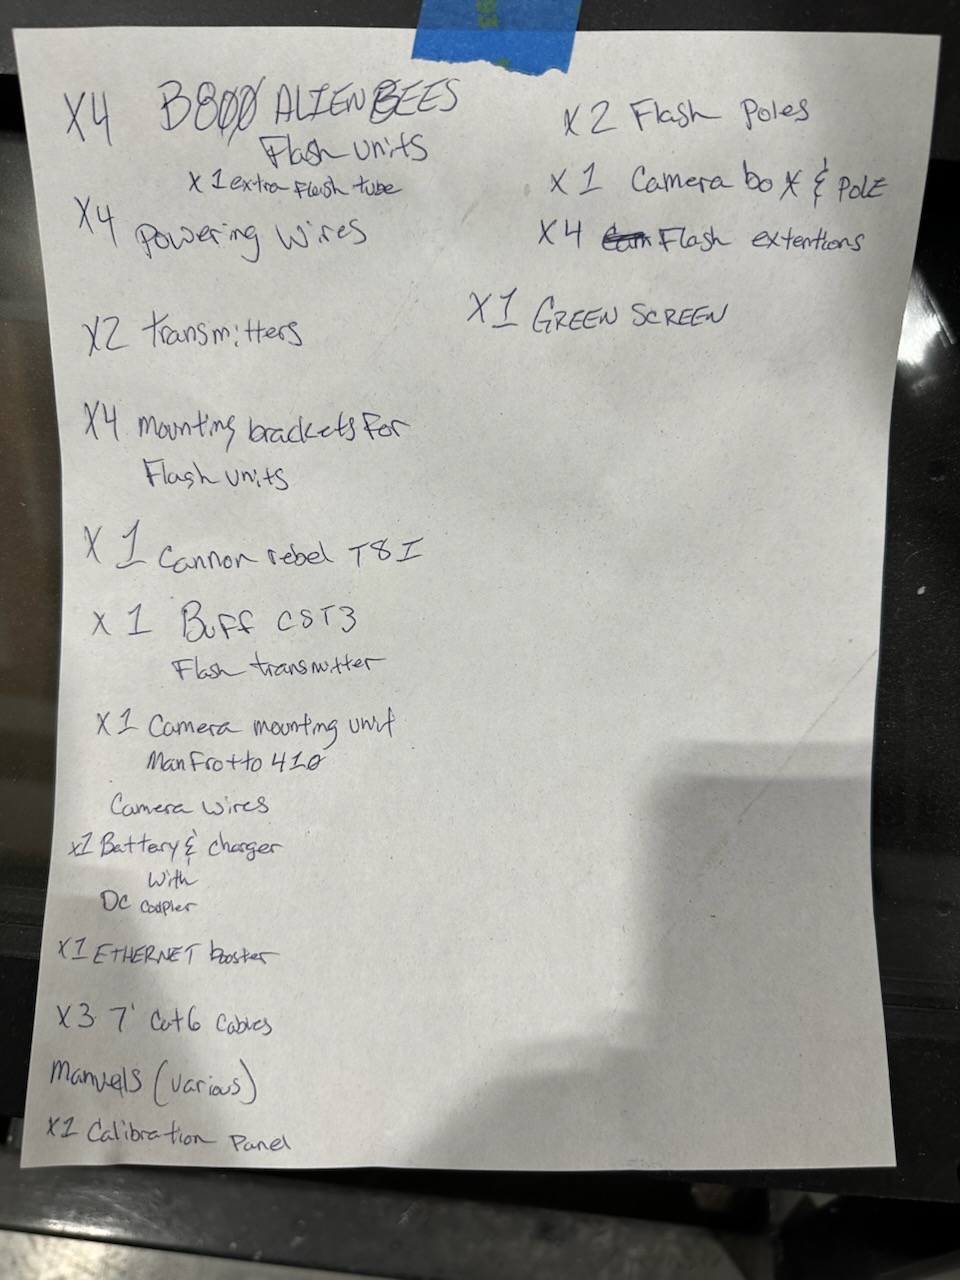 X4 B800 ALIEN BEES
Flash units
X 1 extra Flash tube
X4 Powering Wires
X2 transmitters
X4 mounting brackets For
Flash units
X 1 Cannon rebel T8I
X 1 Buff CST3
Flash transmitter
X 1 Camera mounting unit
ManFrotto 410
Camera wires
x1 Battery & charger
With
DC coupler
X1 ETHERNET booster
X3 7' Cat6 Cables
Manuels (various)
X1 Calibration Panel
X2 Flash Poles
X 1 Camera box & POLE
X4 Flash extentions
X1 GREEN SCREEN